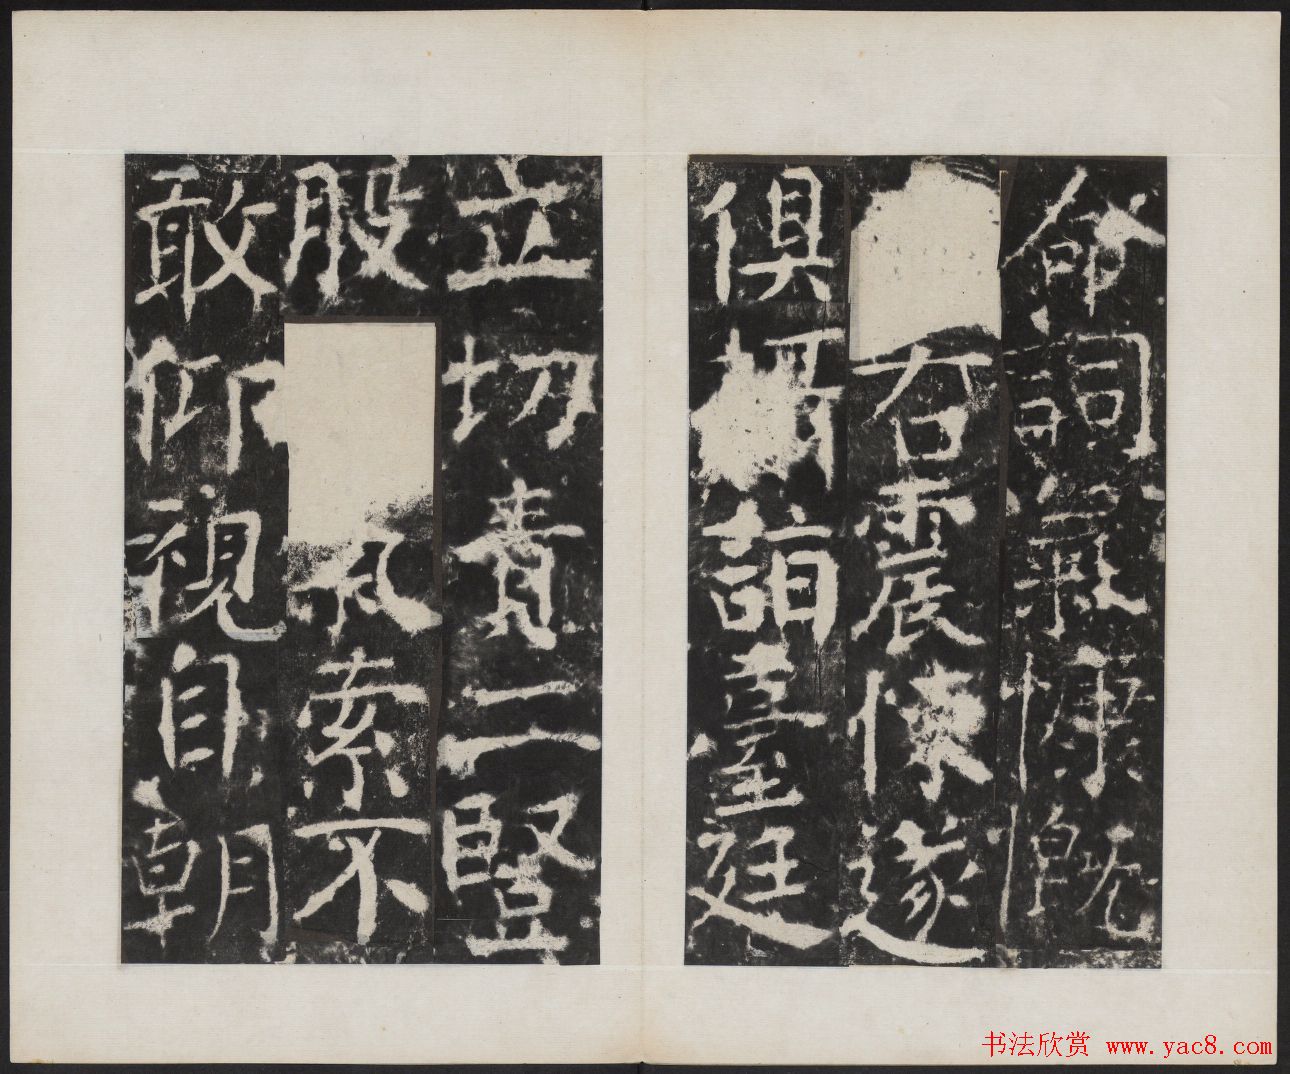 命詞氣慷慨
右震悚遂
俱詣臺廷
立切責二豎
股索不
敢仰視自朝
书法欣赏 www.yac8.com